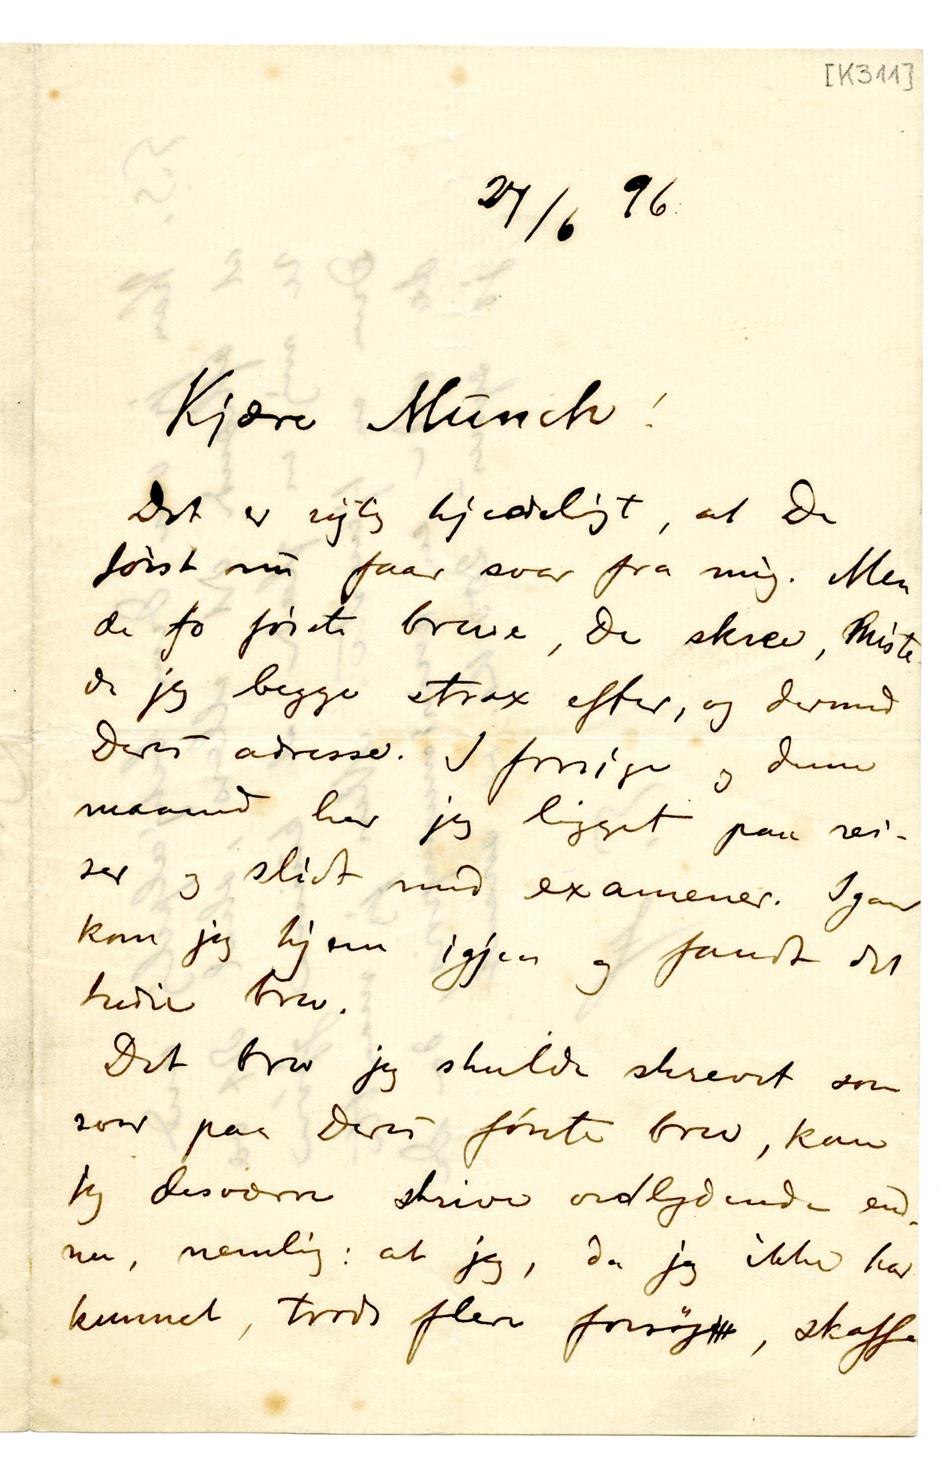 [K311]
27/6 96.
Kjære Münch!
Det er rigtig kjedeligt, at De
først nu faar svar fra mig. Men
de to første breve, De skrev, miste-
de jeg begge strax efter, og dermed
Deres adresse. I forrige og denne
maaned har jeg ligget paa rei-
ser og slidt med examener. Igaar
kom jeg hjem igjen og fandt det
tredie brev.
Det brev jeg skulde skrevet som
svar paa Deres første brev, kan
jeg desværre skrive ordlydende en-
nu, nemlig: at jeg, da jeg ikke har
kunnet, trods flere forsøg, skaffe